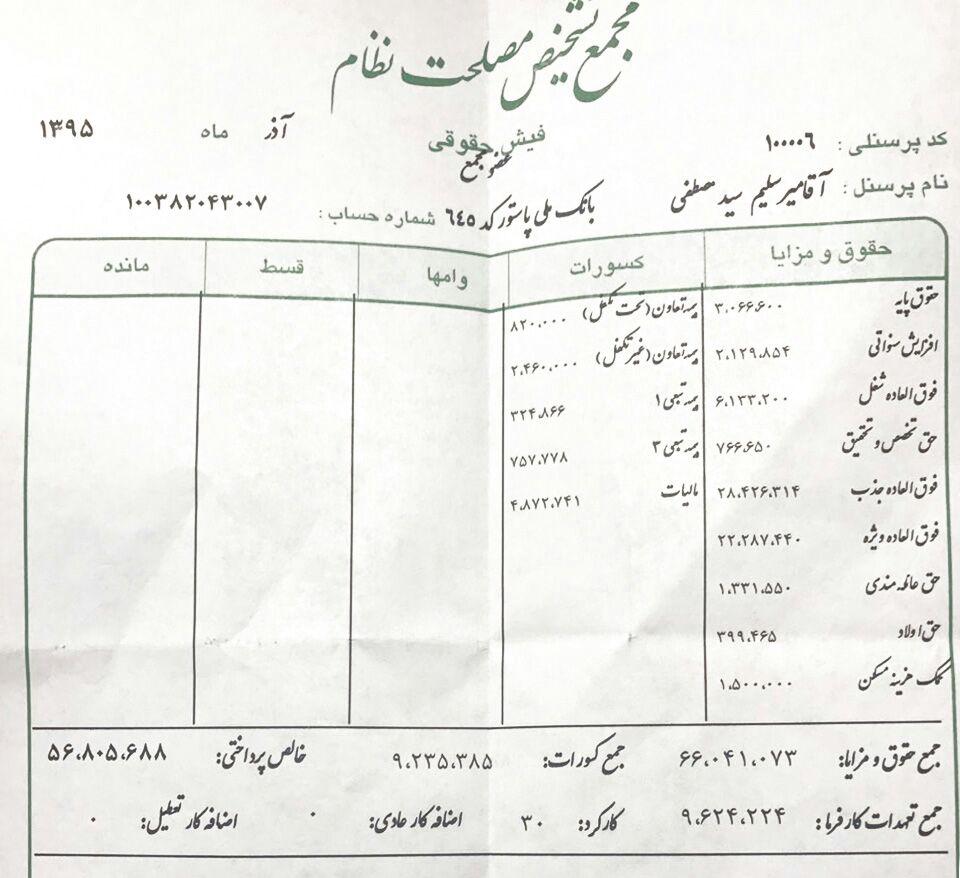 مجمع تشخیص مصلحت نظام
کد پرسنلی: ۱۰۰۰۰۶ فیش حقوقی آذر ماه ۱۳۹۵
عضو مجمع
نام پرسنل: آقامیرسلیم سید مصطفی بانک ملی پاستور کد ۶۴۵ شماره حساب: ۱۰۰۳۸۲۰۴۳۰۰۷
حقوق و مزایا کسورات وامها قسط مانده
حقوق پایه ۳،۰۶۶،۶۰۰ بیمه تعاون (تحت تکفل) ۸۲۰،۰۰۰
افزایش سنواتی ۲،۱۲۹،۸۵۴ بیمه تعاون (غیر تکفل) ۲،۴۶۰،۰۰۰
فوق العاده شغل ۶،۱۳۳،۲۰۰ بیمه تبعی ۱ ۳۲۴،۸۶۶
حق تخصص و تحقیق ۷۶۶،۶۵۰ بیمه تبعی ۳ ۷۵۷،۷۷۸
فوق العاده جذب ۲۸،۴۲۶،۳۱۴ مالیات ۴،۸۷۲،۷۴۱
فوق العاده ویژه ۲۲،۲۸۷،۴۴۰
حق عائله مندی ۱،۳۳۱،۵۵۰
حق اولاد ۳۹۹،۴۶۵
کمک هزینه مسکن ۱،۵۰۰،۰۰۰
جمع حقوق و مزایا: ۶۶،۰۴۱،۰۷۳ جمع کسورات: ۹،۲۳۵،۳۸۵ خالص پرداختی: ۵۶،۸۰۵،۶۸۸
جمع تعهدات کارفرما: ۹،۶۲۴،۲۲۴ کارکرد: ۳۰ اضافه کار عادی: ۰ اضافه کار تعطیل: ۰